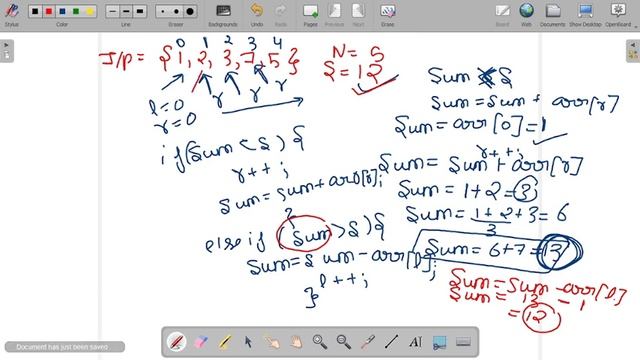 Stylus Color Line Width Backgrounds Undo Redo Erase Board Web Documents Show Desktop OpenBoard
0 1 2 3 4
I/p = {1, 2, 3, 7, 5}
N = 5
S = 12
l=0
r=0
r r r
if(Sum < S) {
r++;
Sum = Sum + arr[r];
}
else if (Sum > S) {
Sum = Sum - arr[l];
l++;
}
Sum S
Sum = Sum + arr[r]
Sum = arr[0] = 1
r++;
Sum = Sum + arr[r]
Sum = 1+2 = 3
Sum = 1+2+3 = 6
3
Sum = 6+7 = 13
Sum = Sum - arr[l]
Sum = 13 - 1
= 12
Document has just been saved